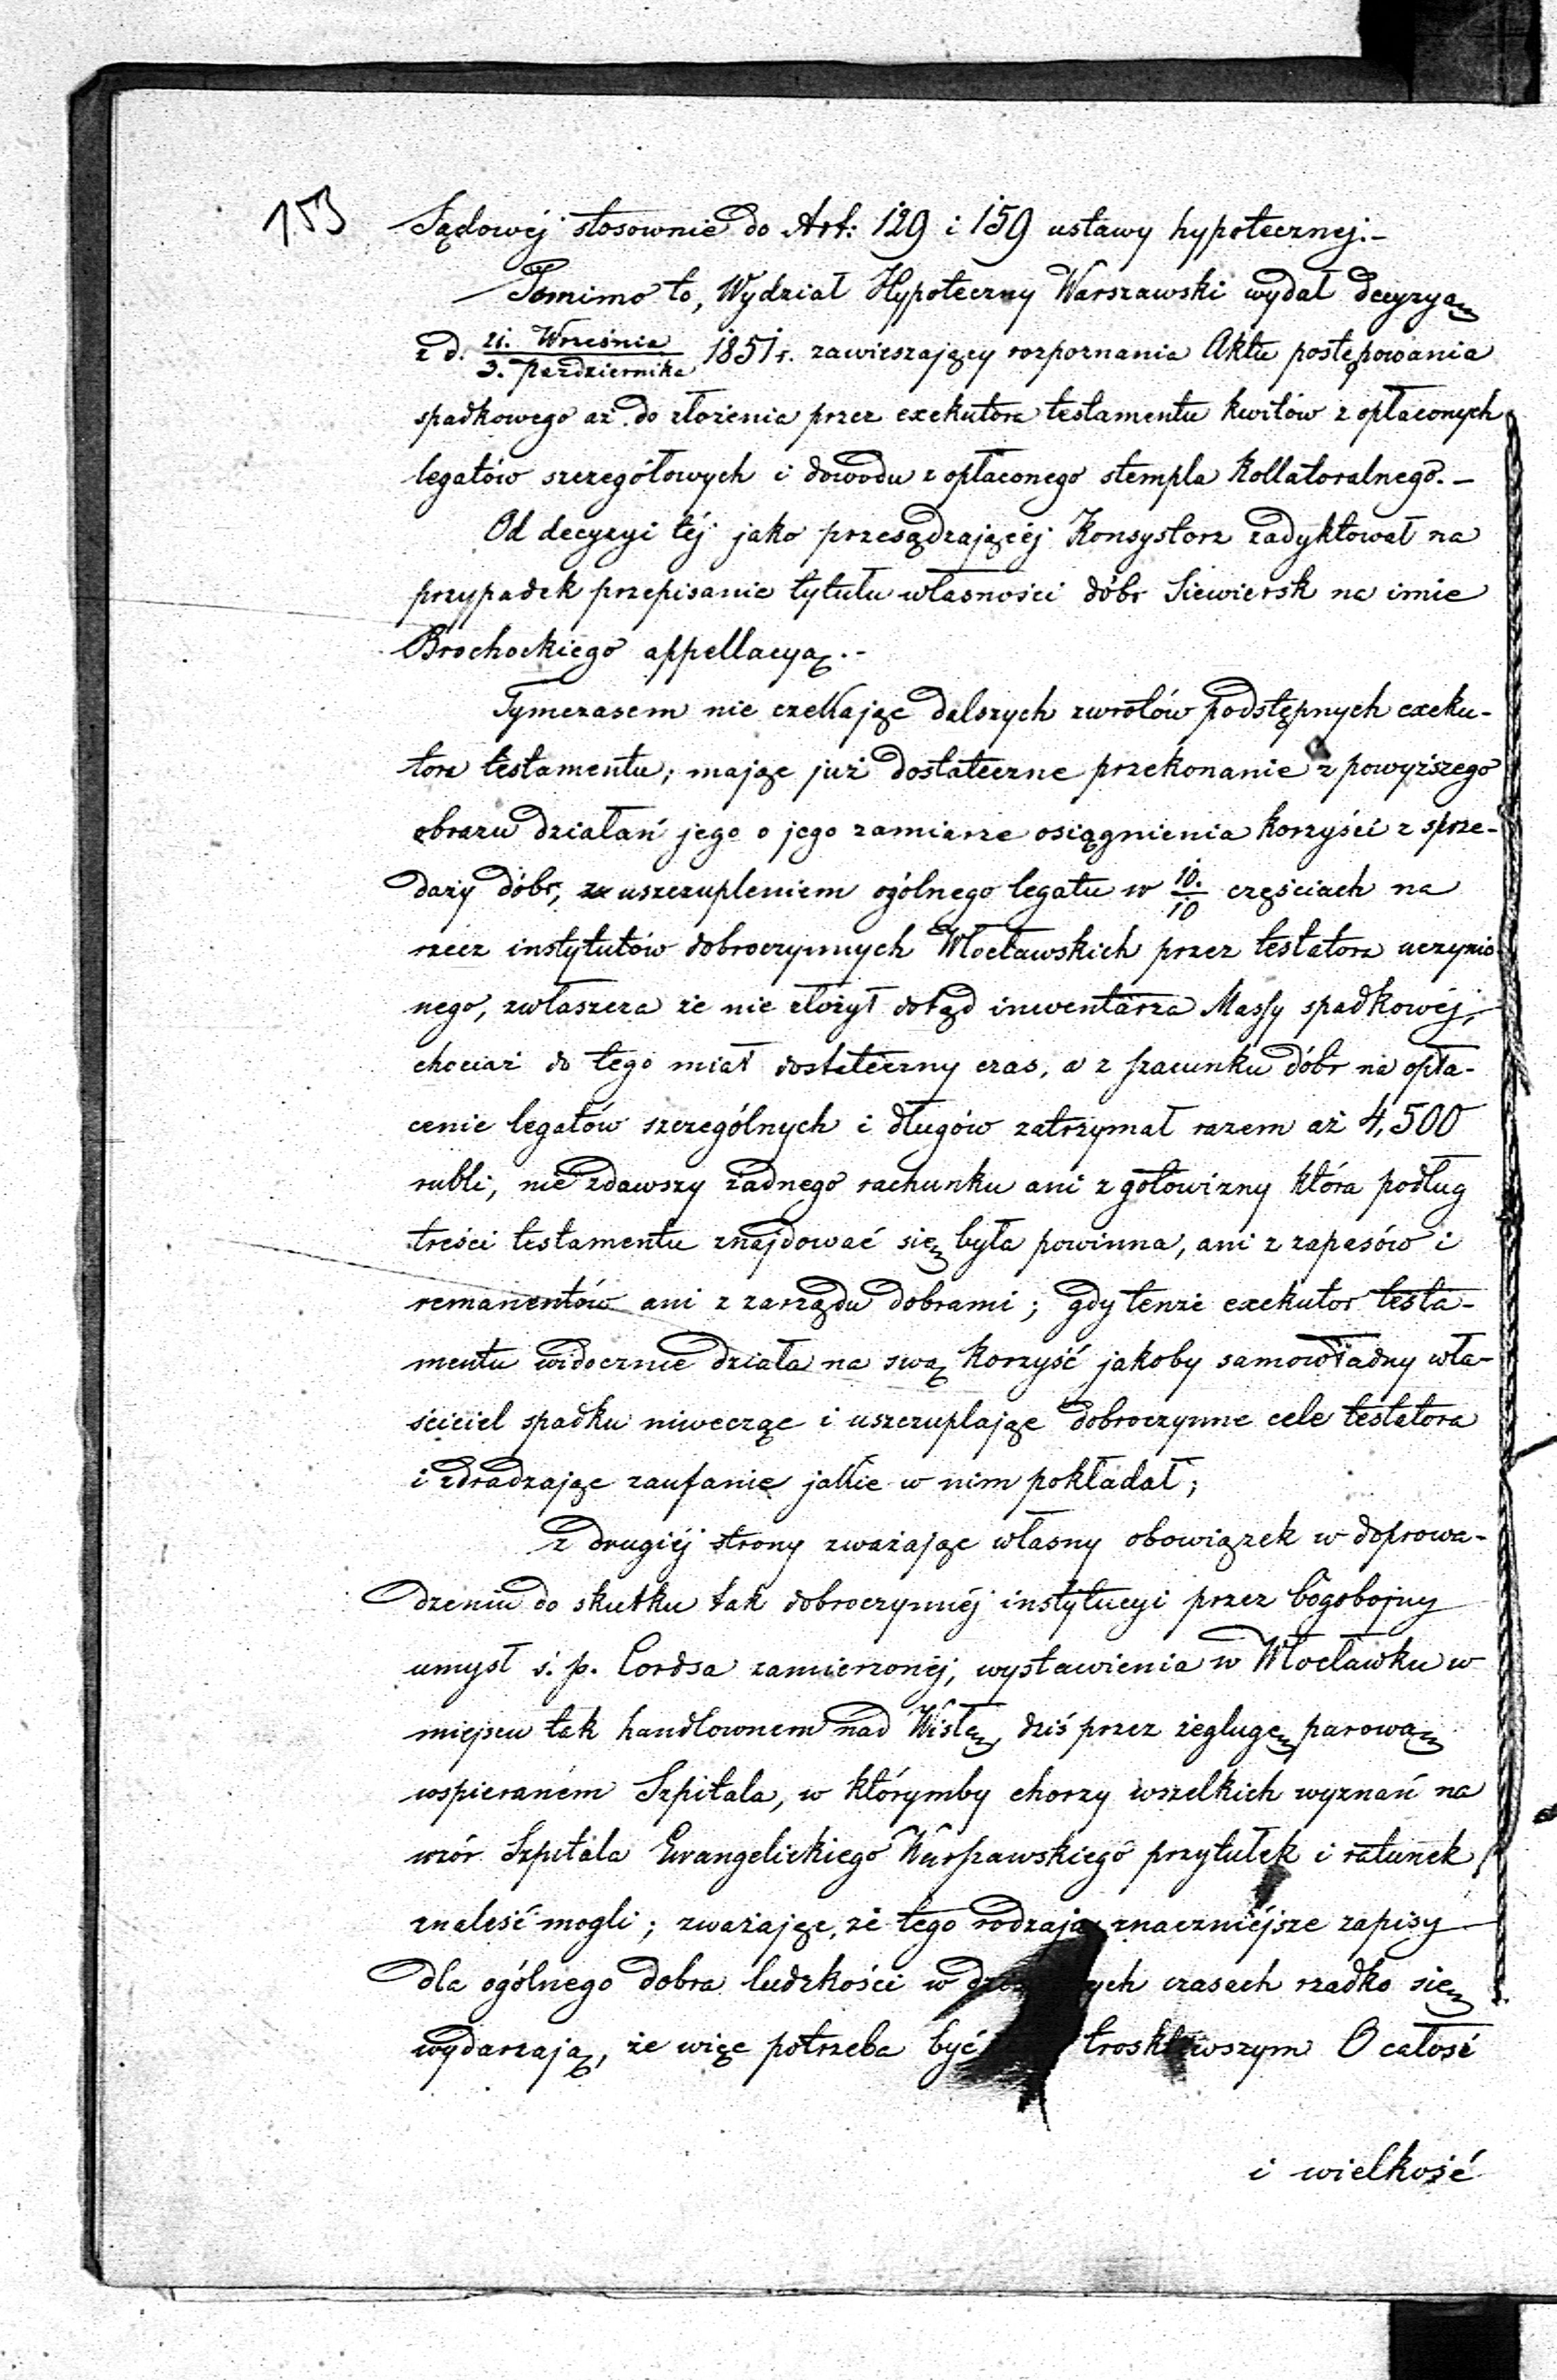 153
Sądowéj stosownie do Art: 129 i 159 ustawy hypotecznej.-
Pomimo to, Wydział Hypoteczny Warszawski wydał decyzyą
z d. 21. Września / 3. Października 1851 r. zawieszający rozpoznania Aktu postępowania
spadkowego aż do złożenia przez exekutora testamentu kwitów z opłaconych
legatów szczegółowych i dowodu z opłaconego stempla Kollatoralnego.-
Od decyzyi téj jako przesądzającéj Konsystorz zadyktował na
przypadek przepisanie tytułu własności dóbr Siewiersk na imie
Brochockiego appellacyą.-
Tymczasem nie czekając dalszych zwrotów podstępnych exeku-
tora testamentu; mając już dostateczne przekonanie z powyższego
obrazu działań jego o jego zamiarze osiągnienia korzyści z sprze-
daży dóbr, za uszczupleniem ogólnego legatu w 10./10 częściach na
rzecz instytutów dobroczynnych Włocławskich przez testatora uczynio-
nego, zwłaszcza że nie złożył dotąd inwentarza Massy spadkowéj,
chociaż do tego miał dostateczny czas, a z szacunku dóbr na opła-
cenie legatów szczególnych i długów zatrzymał razem aż 4,500
rubli, nie zdawszy żadnego rachunku ani z gotowizny która podług
treści testamentu znajdować się była powinna, ani z zapasów i
remanentów ani z zarządu dobrami; gdy tenże exekutor testa-
mentu widocznie działa na swą korzyść jakoby samowładny wła-
ściciel spadku niwecząc i uszczuplając dobroczynne cele testatora
i zdradzając zaufanie jakie w nim pokładał;
z drugiéj strony zważając własny obowiązek w doprowa-
dzeniu do skutku tak dobroczynnéj instytucyi przez bogobojny
umysł ś. p. Cordsa zamierzonéj, wystawienia w Włocławku w
miejscu tak handlownem nad Wisłą, dziś przez żeglugę parową
wspieraném Szpitala, w którymby chorzy wszelkich wyznań na
wzór Szpitala Ewangelickiego Warszawskiego przytułek i ratunek
znaleść mogli; zważając, że tego rodzaju znaczniéjsze zapisy
dla ogólnego dobra ludzkości w czasach rzadko się
wydarzają, że więc potrzeba być troskliwszym O całość
i wielkość